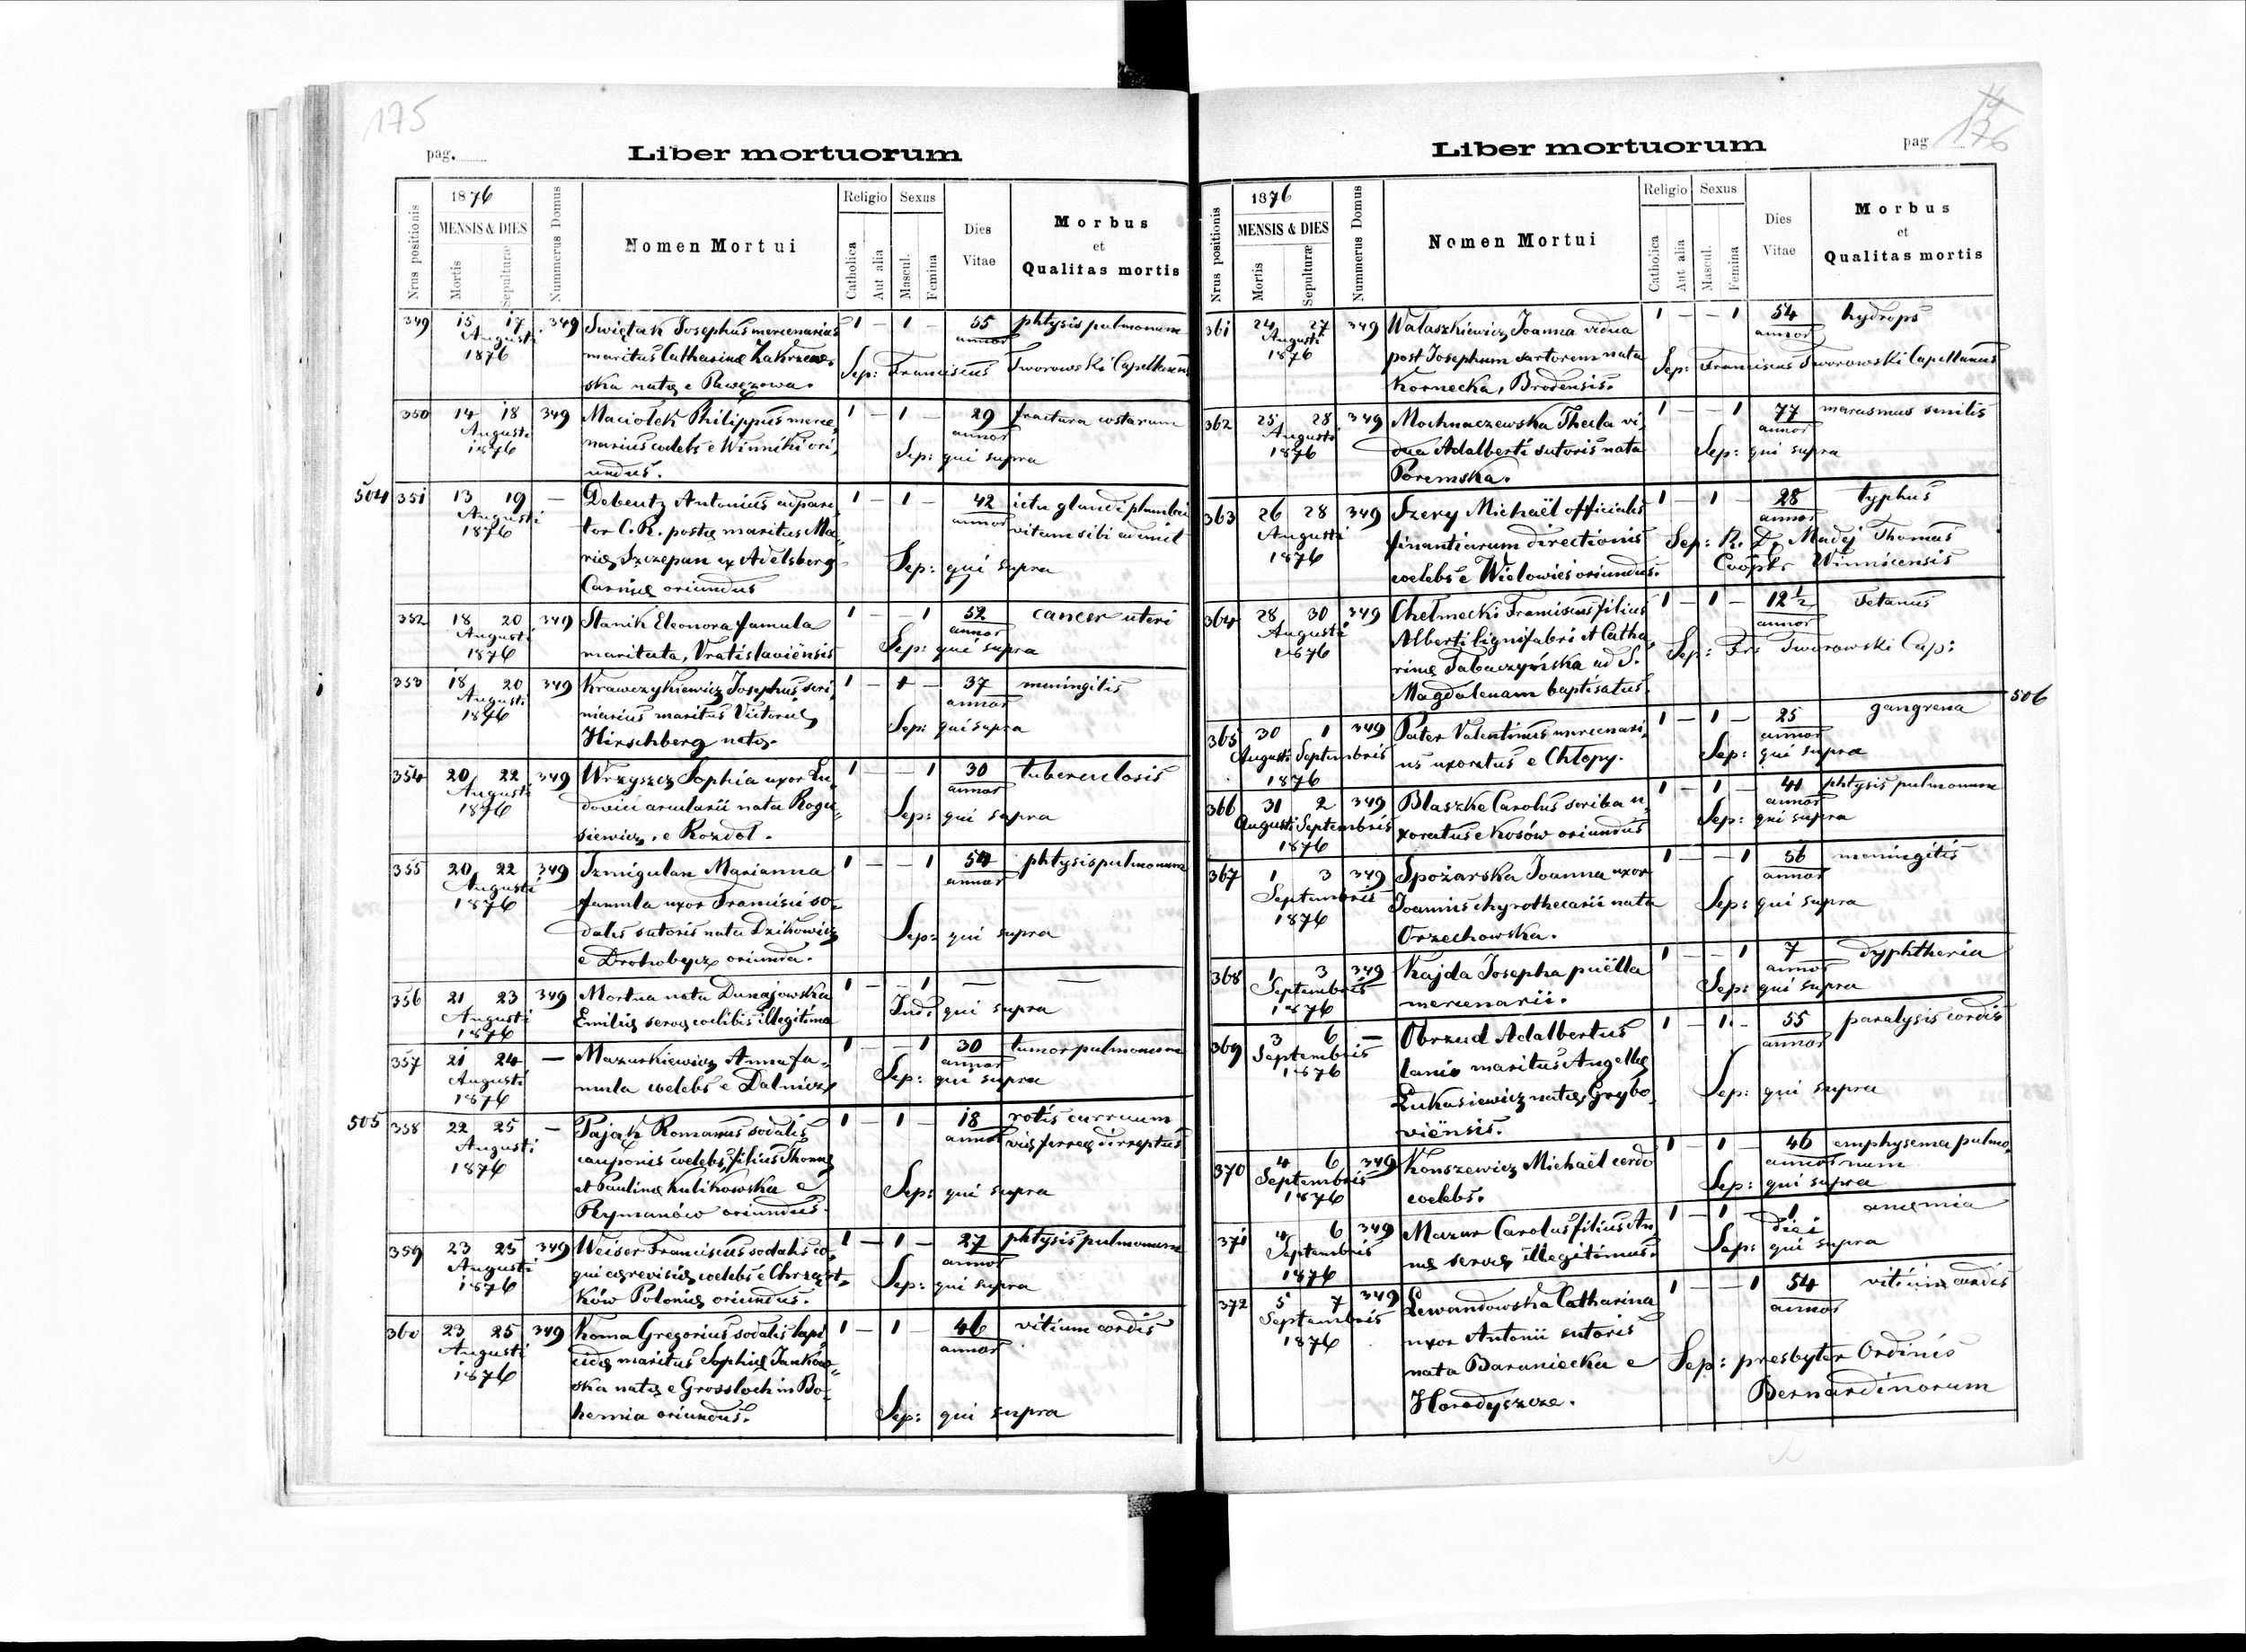 175
pag.
Liber mortuorum
1876
Nrus positionis
MENSIS & DIES
Mortis
Sepulturæ
Nummerus Domus
Nomen Mortui
Religio
Catholica
Aut alia
Sexus
Mascul.
Femina
Dies
Vitae
Morbus
et
Qualitas mortis
349 15 17 349 Swiętak Josephus mercenarius 1 – 1 – 55 phtysis pulmonum
Augusti maritus Catharinę Zakrzew= annor
1876 ska natę e Pawęzowa. Sep: Franciscus Tworowski Capellanus
350 14 18 349 Maciołek Philippus merce, 1 – 1 – 29 fractura costarum
Augusti narius coelebs e Winniki ori, annor
1876 undus. Sep: qui supra
504 351 13 19 – Debentz Antonius adpari= 1 – 1 – 42 ictu glandi plumbei
Augusti tor C. R. postę maritus Ma= annor vitam sibi ademit
1876 rię Szczepan ex Adelsberg Sep: qui supra
Carnię oriundus
352 18 20 349 Stanik Eleonora famula 1 – – 1 52 cancer uteri
Augusti maritata, Vratislaviënsis annor
1876 Sep: qui supra
353 18 20 349 Krawczykiewicz Josephus scri 1 – 1 – 37 meningitis
Augusti niarius maritus Victorię annor
1876 Hirschberg natę. Sep: qui supra
354 20 22 349 Wrzyszcz Sophia uxor Lu= 1 – – 1 30 tuberculosis
Augusti dovici arcularii nata Rogu= annor
1876 siewicz, e Rozdoł. Sep: qui supra
355 20 22 349 Szmigulan Marianna 1 – – 1 54 phtysis pulmonum
Augusti famula uxor Francisci so= annor
1876 dalis sutoris nata Dzikowicz Sep: qui supra
e Drohobycz oriunda.
356 21 23 349 Mortua nata Dunajowska 1 – – 1 – –
Augusti Emilię servę coelibis illegitima Ind: qui supra
1876
357 21 24 – Mazurkiewicz Anna fa= 1 – – 1 30 tumor pulmonum
Augusti mula coelebs e Dalnicz annor
1876 Sep: qui supra
505 358 22 25 – Pająk Romanus sodalis 1 – 1 – 18 rotis curruum
Augusti cauponis coelebs, filius Thomę annor vię ferreę dirreptus
1876 et Paulinę Kulikowska e Sep: qui supra
Rymanów oriundus.
359 23 25 349 Weiser Franciscus sodalis co= 1 – 1 – 27 phtysis pulmonum
Augusti qui cęrevisię coelebs e Chrząst= annor
1876 ków Polonię oriundus. Sep: qui supra
360 23 25 349 Koma Gregorius sodalis lapi 1 – 1 – 46 vitium cordis
Augusti cidę maritus Sophię Jankow= annor
1876 ska natę e Grossloch in Bo=
hemia oriundus. Sep: qui supra
pag
176
Liber mortuorum
1876
Nrus positionis
MENSIS & DIES
Mortis
Sepulturæ
Nummerus Domus
Nomen Mortui
Religio
Catholica
Aut alia
Sexus
Mascul.
Femina
Dies
Vitae
Morbus
et
Qualitas mortis
361 24 27 349 Wałaszkiewicz Joanna vidua 1 – – 1 54 hydrops
Augusti post Josephum sartorem nata annor
1876 Kornecka, Brodensis. Sep: Franciscus Tworowski Capellanus
362 25 28 349 Mochnaczewska Thecla vi, 1 – – 1 77 marasmus senilis
Augusti dua Adalberti sutoris nata annor
1876 Poremska. Sep: qui supra
363 26 28 349 Szery Michaël officialis 1 – 1 – 28 typhus
Augusti finantiarum directionis annor
1876 coelebs e Wielowieś oriundus. Sep: R. D. Madej Thomas
Coopts Winnicensis
364 28 30 349 Chełmecki Franciscus filius 1 – 1 – 12 1/2 tetanus
Augusti Alberti lignifabri et Catha, annor
1876 rinę Tabaczyńska ad S. Sep: Fr: Tworowski Cap:
Magdalenam baptisatus.
365 30 1 349 Pater Valentinus mercenari, 1 – 1 – 25 gangrena 506
Augusti Septembris us uxoratus e Chłopy. annor
1876 Sep: qui supra
366 31 2 349 Blaszke Carolus scriba u, 1 – 1 – 41 phtysis pulmonum
Augusti Septembris xoratus e Kosów oriundus annor
1876 Sep: qui supra
367 1 3 349 Spożarska Joanna uxor 1 – – 1 56 meningitis
Septembris Joannis chyrothecarii nata annor
1876 Orzechowska. Sep: qui supra
368 1 3 349 Kajda Josepha puëlla 1 – – 1 7 dyphtheria
Septembris mercenarii. annor
1876 Sep: qui supra
369 3 6 – Obrzud Adalbertus 1 – 1. – 55 paralysis cordis
Septembris lanio maritus Angellę annor
1876 Łukasiewicz natę, Grybo, Sep: qui supra
viënsis.
370 4 6 349 Konszewicz Michaël cerdo 1 – 1 – 46 emphysema pulmo,
Septembris coelebs. annor num
1876 Sep: qui supra
371 4 6 349 Mazur Carolus filius An 1 – 1 – 1 anęmia
Septembris nę servę illegitimus. diei
1876 Sep: qui supra
372 5 7 349 Lewandowska Catharina 1 – – 1 54 vitium cordis
Septembris uxor Antonii sutoris annor
1876 nata Baraniecka e Sep: presbyter Ordinis
Horodyszcze. Bernardinorum